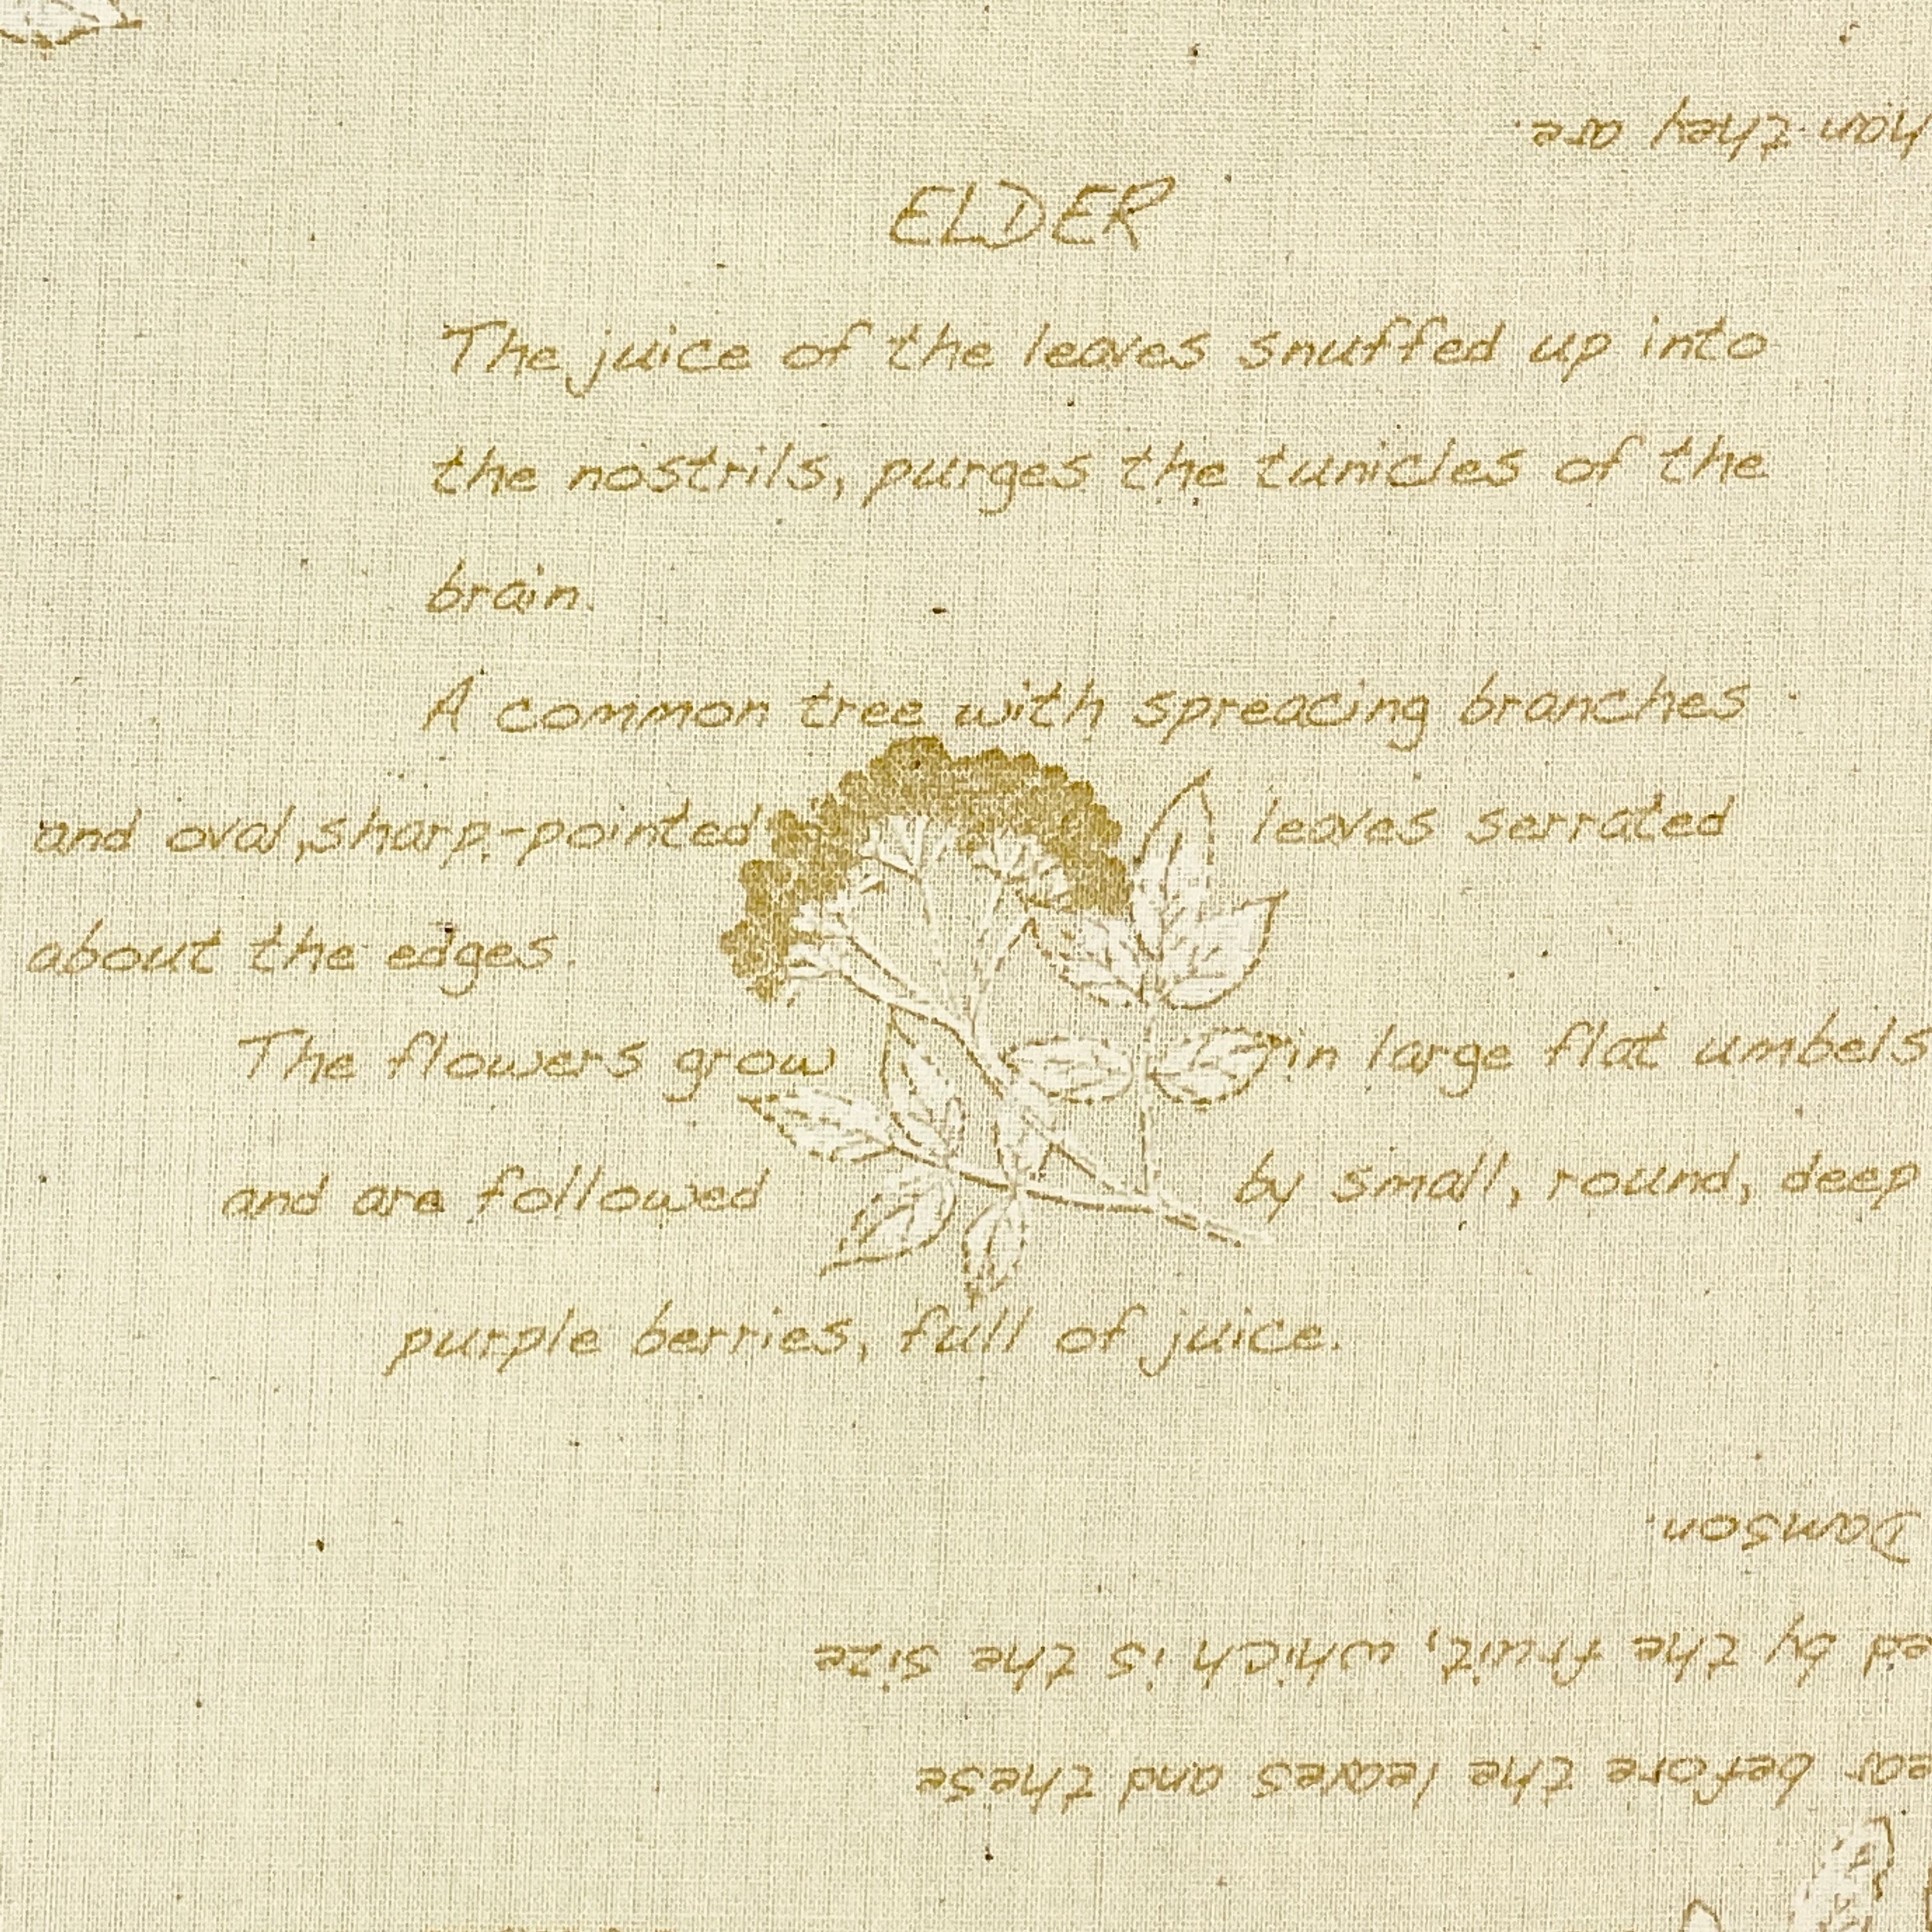 than they are.
ELDER
The juice of the leaves snuffed up into
the nostrils, purges the tunicles of the
brain.
A common tree with spreading branches
and oval, sharp-pointed leaves serrated
about the edges.
The flowers grow in large flat umbels
and are followed by small, round, deep
purple berries, full of juice.
Damson.
ed by the fruit, which is the size
ear before the leaves and these